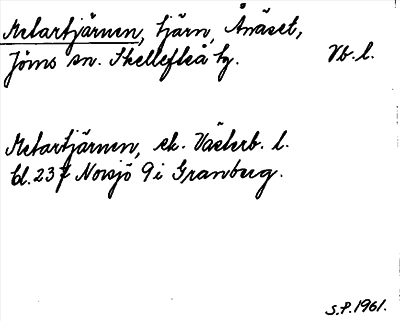 Metartjärnen, tjärn, Ånäset,
Jörns sn. Skellefteå tg. Vb. l.
Metartjärnen, ek. Västerb. l.
bl. 237 Norsjö 9 i Granberg.
S.P. 1961.